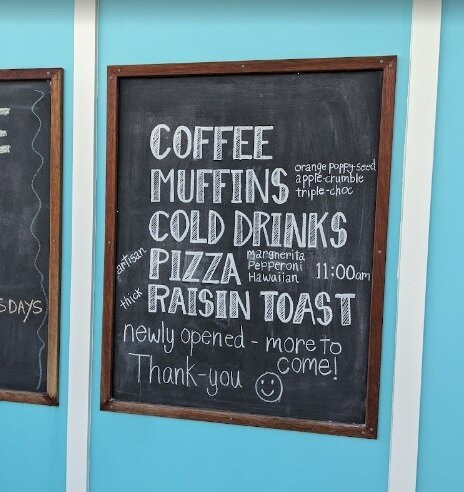 E
SDAYS
COFFEE
MUFFINS orange poppy-seed
apple-crumble
triple-choc
COLD DRINKS
artisan PIZZA margherita
Pepperoni
Hawaiian
11:00am
thick RAISIN TOAST
newly opened - more to
come!
Thank-you